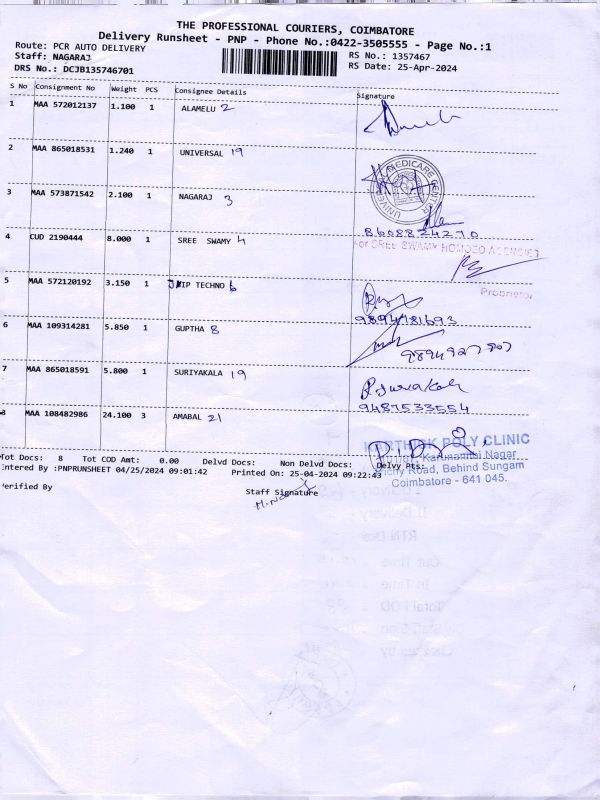 THE PROFESSIONAL COURIERS, COIMBATORE
Delivery Runsheet - PNP - Phone No.:0422-3505555 - Page No.:1
Route: PCR AUTO DELIVERY
RS No.: 1357467
Staff: NAGARAJ
RS Date: 25-Apr-2024
DRS No.: DCJB135746701
S No Consignment No Weight PCS Consignee Details Signature
1 MAA 572012137 1.100 1 ALAMELU 2
2 MAA 865018531 1.240 1 UNIVERSAL 19
MEDICARE
3 MAA 573871542 2.100 1 NAGARAJ 3
8608824270
4 CUD 2190444 8.000 1 SREE SWAMY 4
For SREE SWAMY HOMOEO AGENCIES
Proprietor
5 MAA 572120192 3.150 1 JKIP TECHNO 6
9894981693
6 MAA 109314281 5.850 1 GUPTHA 8
9894927507
7 MAA 865018591 5.800 1 SURIYAKALA 19
9487533554
8 MAA 108482986 24.100 3 AMABAL 21
KARTHICK POLY CLINIC
Nagar
Trichy Road, Behind Sungam
Coimbatore - 641 045.
Tot Docs: 8 Tot COD Amt: 0.00 Delvd Docs: Non Delvd Docs: Delvy Pts:
Entered By :PNPRUNSHEET 04/25/2024 09:01:42 Printed On: 25-04-2024 09:22:43
Verified By
Staff Signature